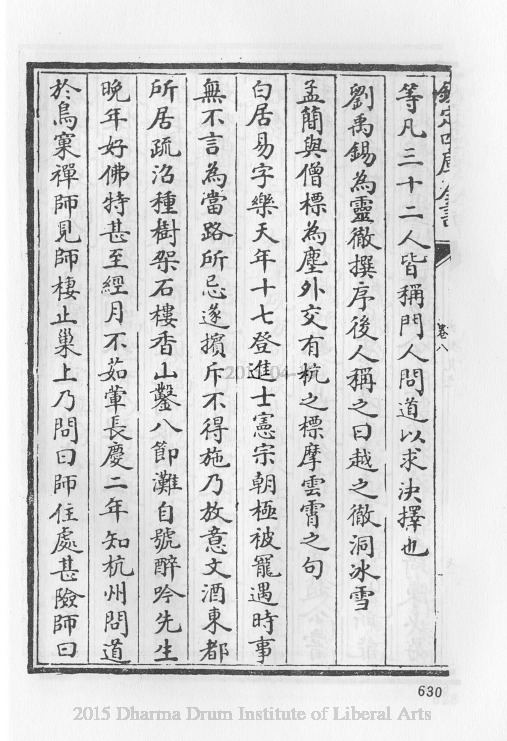 欽定四庫全書
卷八
等凡三十二人皆稱門人問道以求決擇也
劉禹錫為靈徹撰序後人稱之曰越之徹洞冰雪
孟簡與僧標為塵外交有杭之標摩雲霄之句
白居易字樂天年十七登進士憲宗朝極被寵遇時事
無不言為當路所忌遂擯斥不得施乃放意文酒東都
所居疏沼種樹架石樓香山鑿八節灘自號醉吟先生
晚年好佛特甚至經月不茹葷長慶二年知杭州問道
於鳥窠禪師見師棲止巢上乃問曰師住處甚險師曰
630
2015 Dharma Drum Institute of Liberal Arts